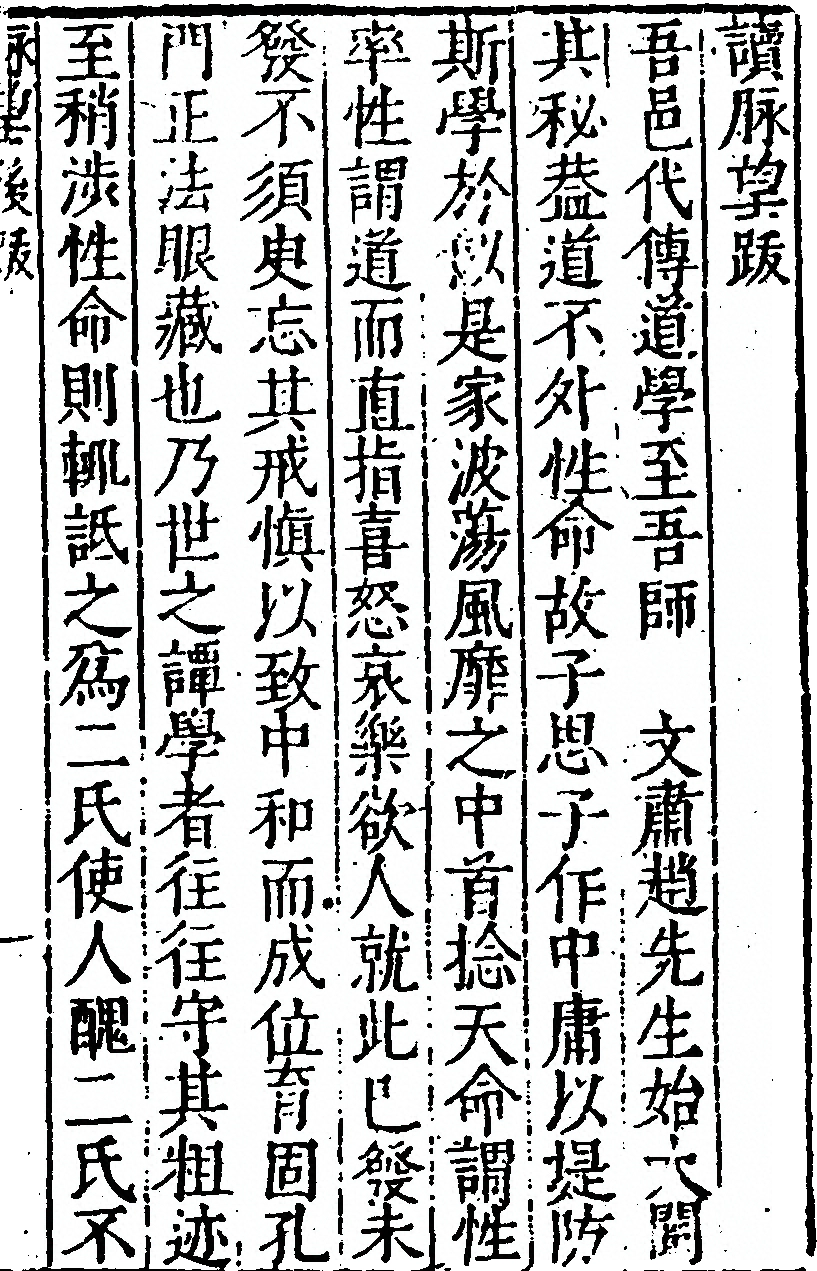 讀脉望跋
吾邑代傳道學至吾師　文肅趙先生始大闡
其秘葢道不外性命故子思子作中庸以堤防
斯學於以是家波蕩風靡之中首捻天命謂性
率性謂道而直指喜怒哀樂欲人就此已發未
發不須臾忘其戒慎以致中和而成位育固孔
門正法眼藏也乃世之譚學者往往守其粗迹
至稍涉性命則輒詆之為二氏使人醜二氏不
脉望後跋